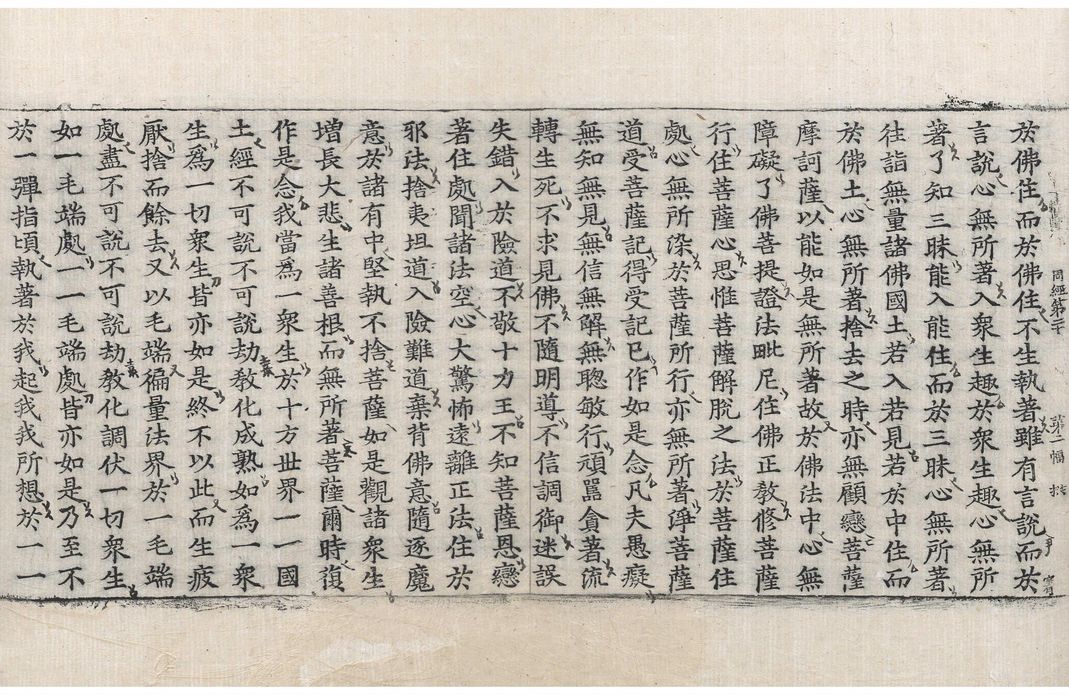 於佛住而於佛住不生執著雖有言說而於
言說心無所著入衆生趣於衆生趣心無所
著了知三昧能入能住而於三昧心無所著
往詣無量諸佛國土若入若見若於中住而
於佛土心無所著捨去之時亦無顧戀菩薩
摩訶薩以能如是無所著故於佛法中心無
障礙了佛菩提證法毗尼住佛正教修菩薩
行住菩薩心思惟菩薩解脫之法於菩薩住
處心無所染於菩薩所行亦無所著淨菩薩
道受菩薩記得受記已作如是念凡夫愚癡
無知無見無信無解無聰敏行頑嚚貪著流
轉生死不求見佛不隨明導不信調御迷誤
失錯入於險道不敬十力王不知菩薩恩戀
著住處聞諸法空心大驚怖遠離正法住於
邪法捨夷坦道入險難道棄背佛意隨逐魔
意於諸有中堅執不捨菩薩如是觀諸衆生
增長大悲生諸善根而無所著菩薩爾時復
作是念我當爲一衆生於十方世界一一國
土經不可說不可說劫教化成熟如爲一衆
生爲一切衆生皆亦如是終不以此而生疲
厭捨而餘去又以毛端徧量法界於一毛端
處盡不可說不可說劫教化調伏一切衆生
如一毛端處一一毛端處皆亦如是乃至不
於一彈指頃執著於我起我我所想於一一